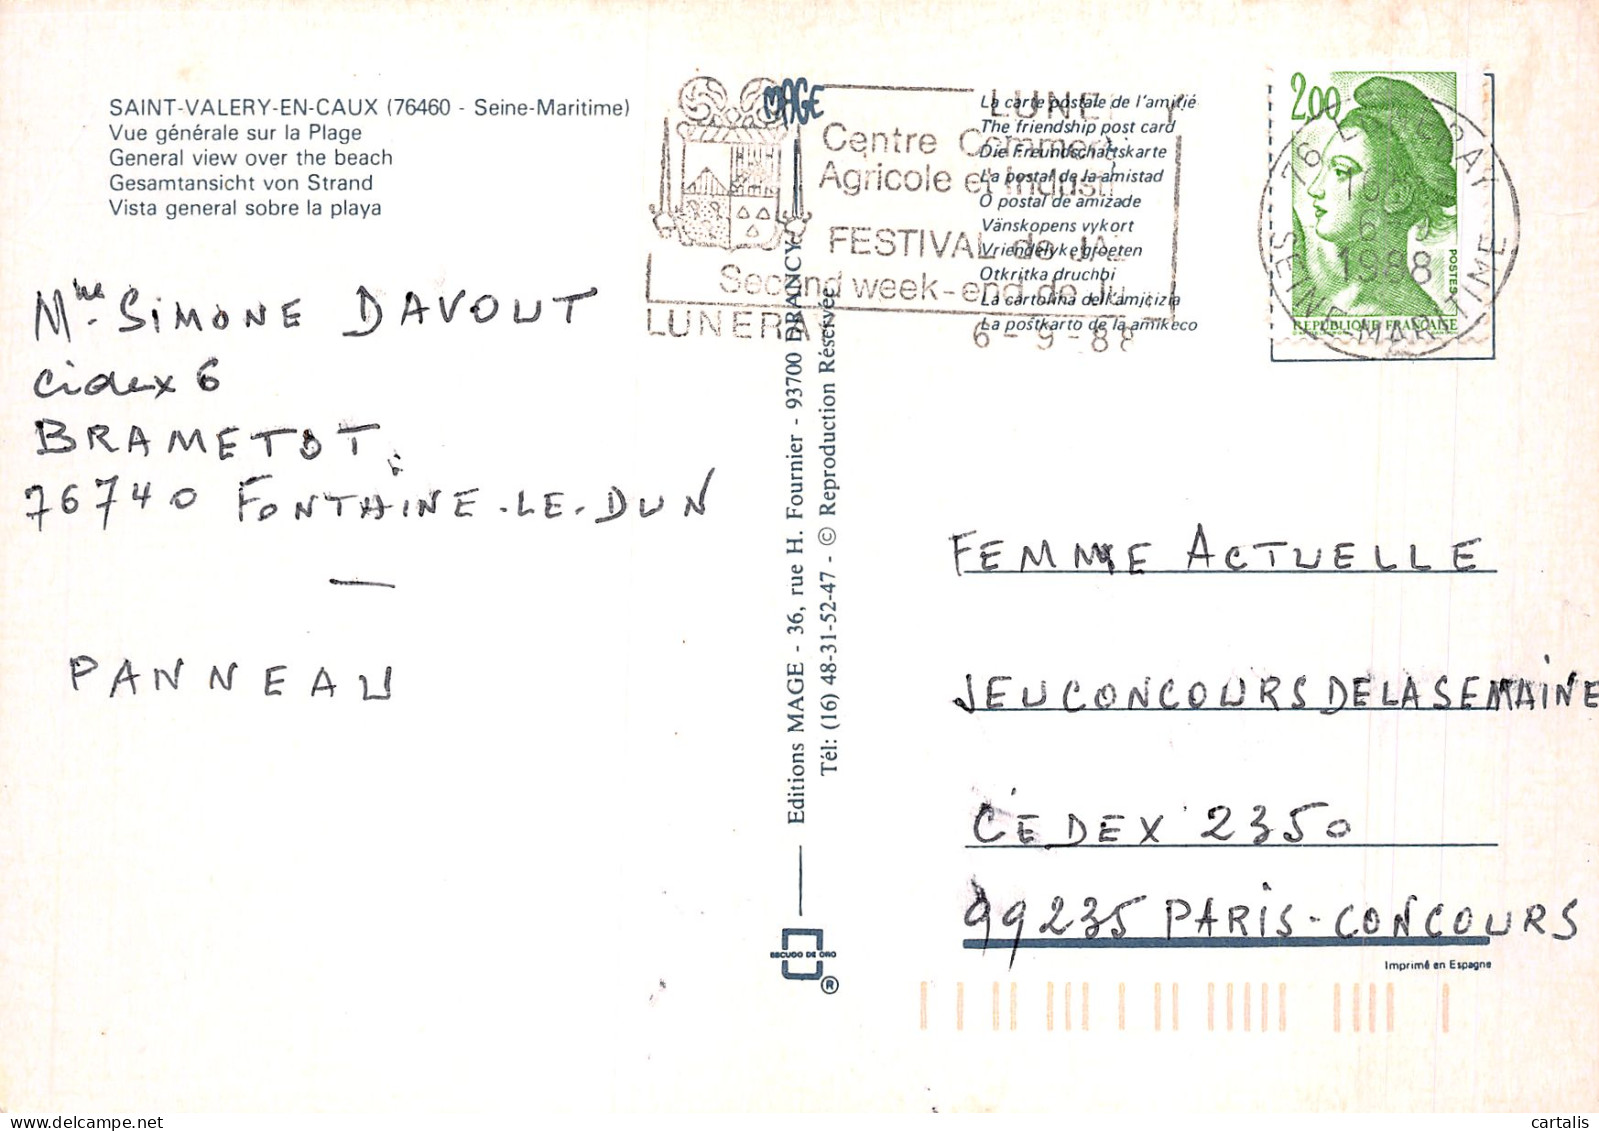 SAINT-VALERY-EN-CAUX (76460 - Seine-Maritime)
Vue générale sur la Plage
General view over the beach
Gesamtansicht von Strand
Vista general sobre la playa
Mme. SIMONE DAVOUT
cidex 6
BRAMETOT
76740 FONTAINE-LE-DUN
PANNEAU
MAGE
Centre
Agricole et
FESTIVAL de
Second week-end de
6-9-88
La carte postale de l'amitié
The friendship post card
Die Freundschaftskarte
La postal de la amistad
O postal de amizade
Vänskopens vykort
Vriendelyke groeten
Otkritka druchbi
La cartolina dell'amicizia
La postkarto de la amikeco
2,00
POSTES
REPUBLIQUE FRANÇAISE
76 LUNERAY
6-9
1988
SEINE MARITIME
Editions MAGE - 36, rue H. Fournier - 93700 DRANCY
Tél: (16) 48-31-52-47 - © Reproduction Réservée
ESCUDO DE ORO
®
FEMME ACTUELLE
JEU CONCOURS DE LA SEMAINE
CEDEX 2350
99235 PARIS-CONCOURS
Imprimé en Espagne
cartalis